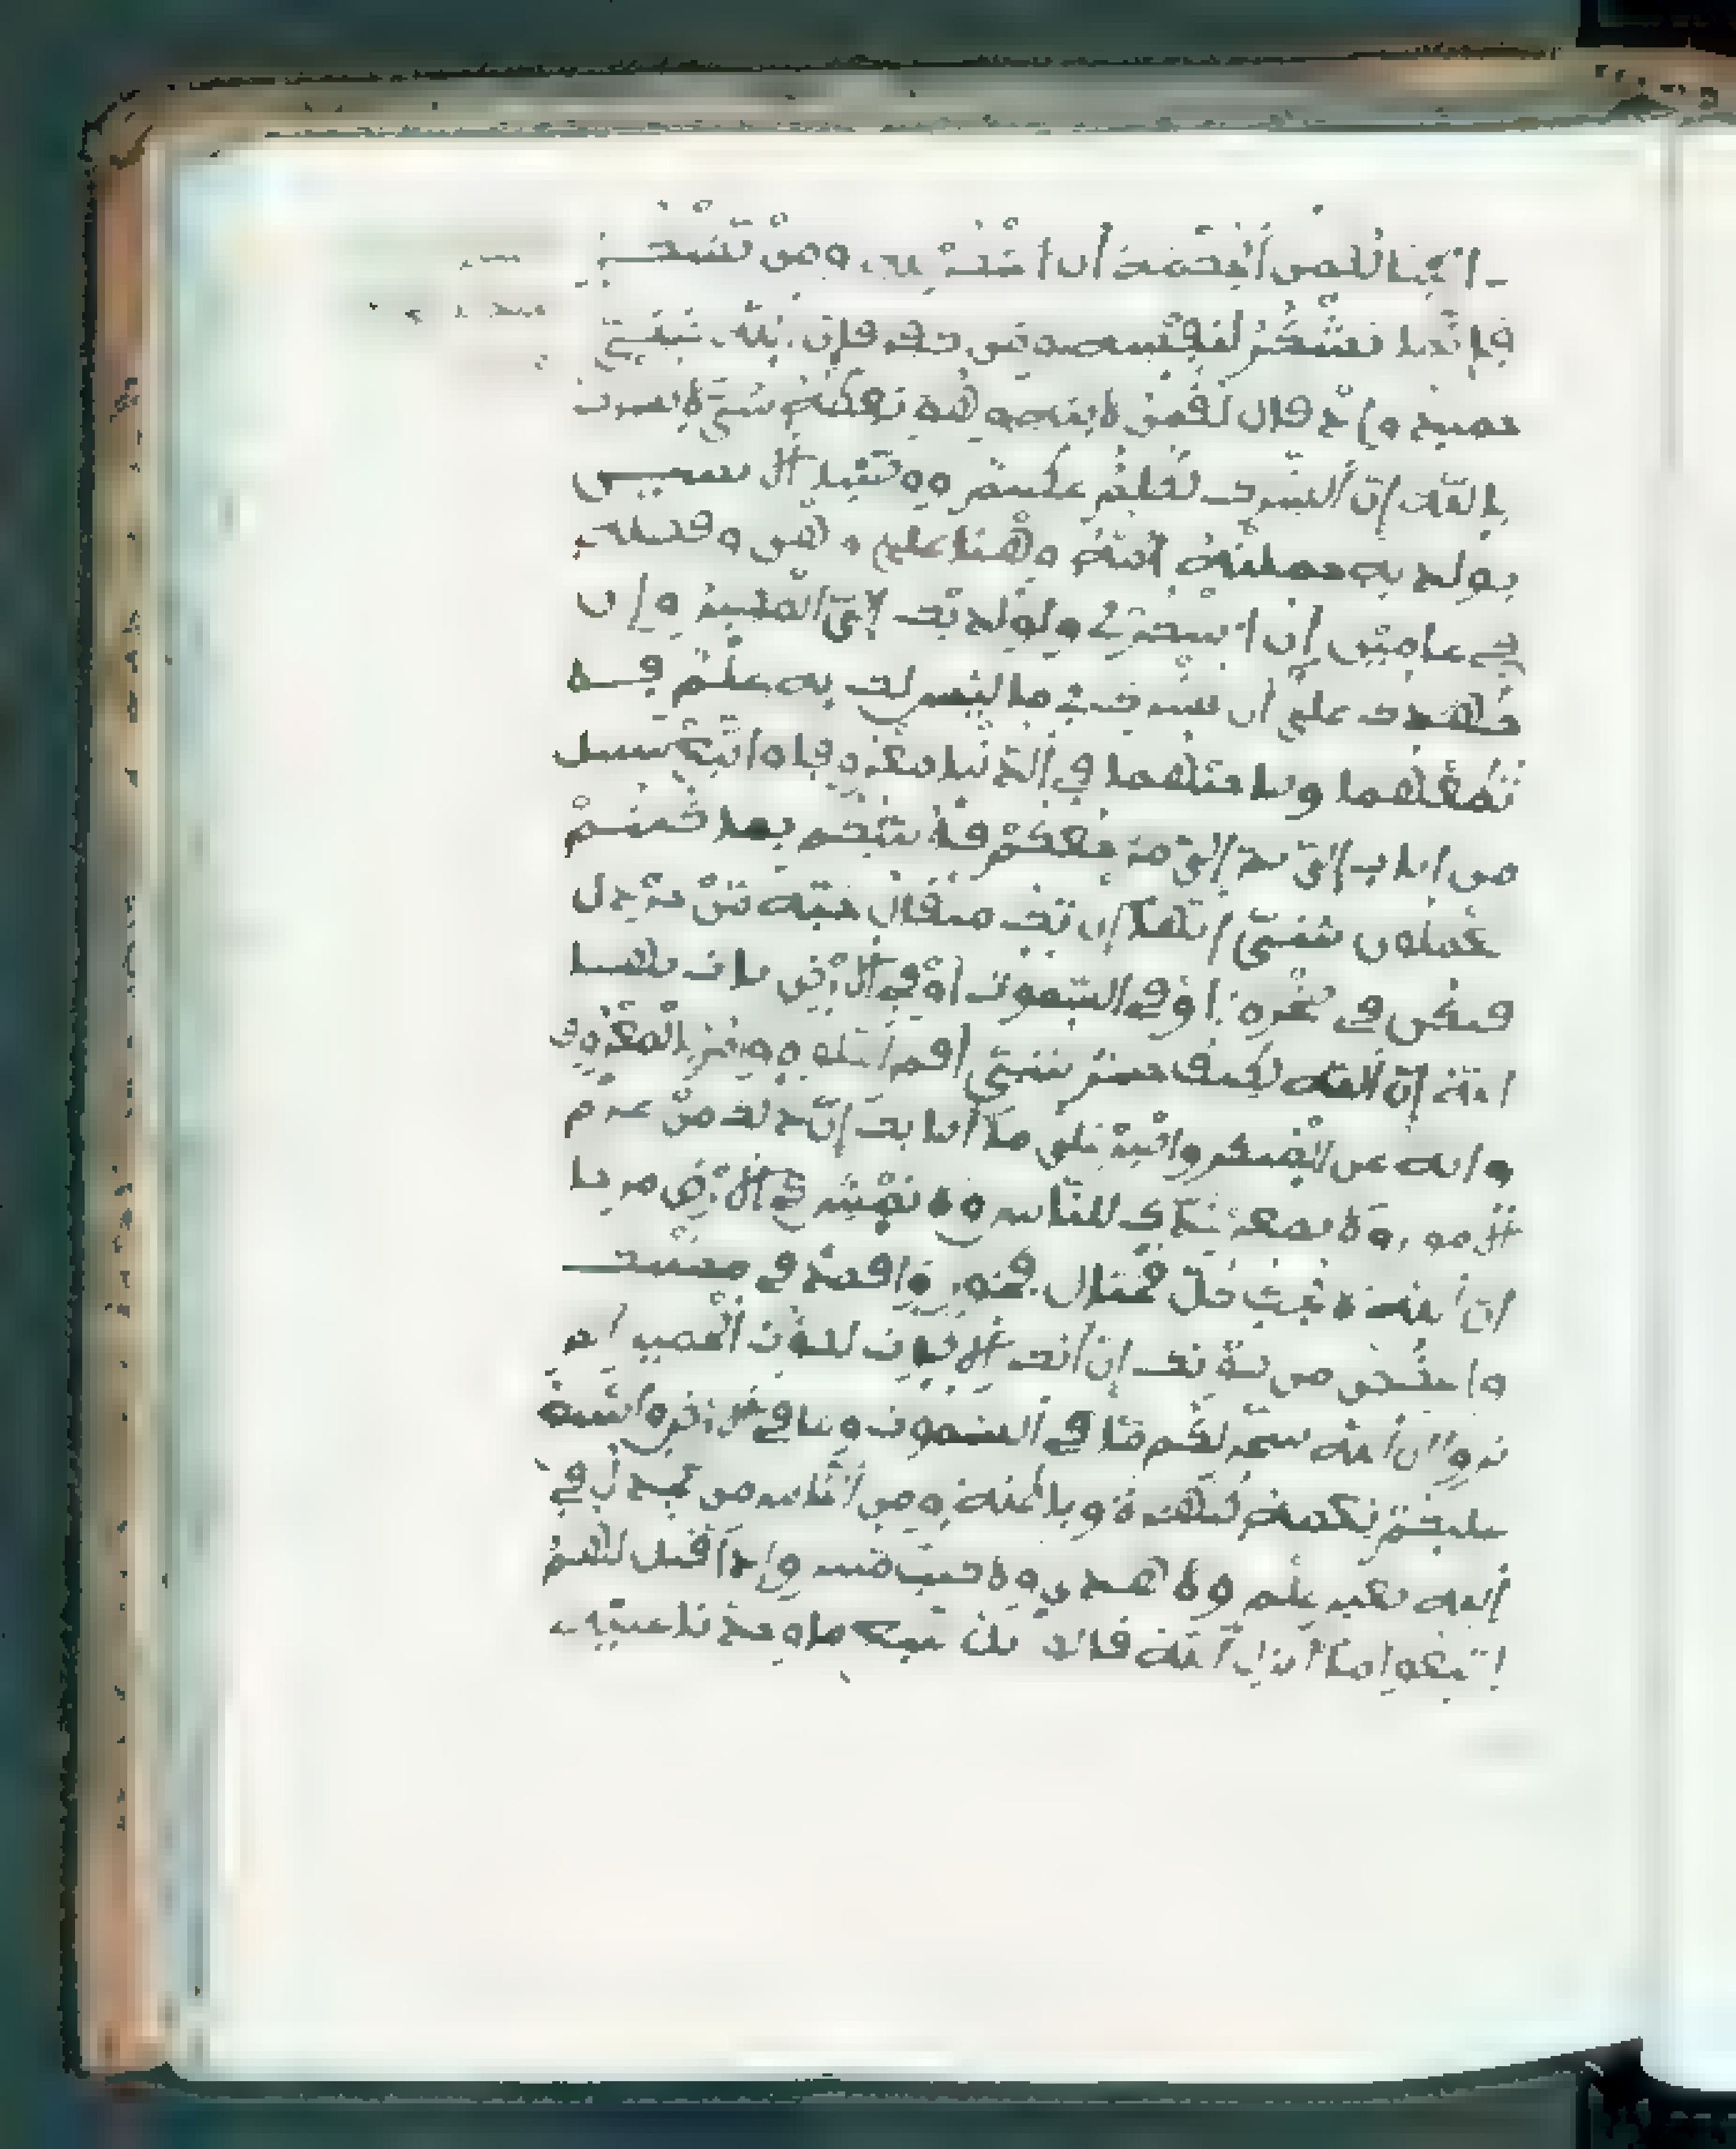 اتينا لقمن الحكمة أن اشكر لله ومن يشكر
فإنما يشكر لنفسه ومن كفر فإن الله غني
حميد وإذ قال لقمن لابنه وهو يعظه يبني لا تشرك
بالله إن الشرك لظلم عظيم ووصينا الانسن
بولديه حملته أمه وهنا على وهن وفصله
في عامين أن اشكر لي ولولديك إلي المصير وإن
جهدك على أن تشرك بي ما ليس لك به علم فلا
تطعهما وصاحبهما في الدنيا معروفا واتبع سبيل
من اناب إلي ثم إلي مرجعكم فأنبئكم بما كنتم
تعملون يبني إنها إن تك مثقال حبة من خردل
فتكن في صخرة أو في السموت أو في الارض يات بها
الله إن الله لطيف خبير يبني أقم الصلوة وامر بالمعروف
وانه عن المنكر واصبر على ما أصابك إن ذلك من عزم
الامور ولا تصعر خدك للناس ولا تمش في الارض مرحا
إن الله لا يحب كل مختال فخور واقصد في مشيك
واغضض من صوتك إن أنكر الاصوات لصوت الحمير ألم
تروا أن الله سخر لكم ما في السموت وما في الارض وأسبغ
عليكم نعمه ظهرة وباطنة ومن الناس من يجدل في
الله بغير علم ولا هدى ولا كتب منير وإذا قيل لهم
اتبعوا ما أنزل الله قالوا بل نتبع ما وجدنا عليه